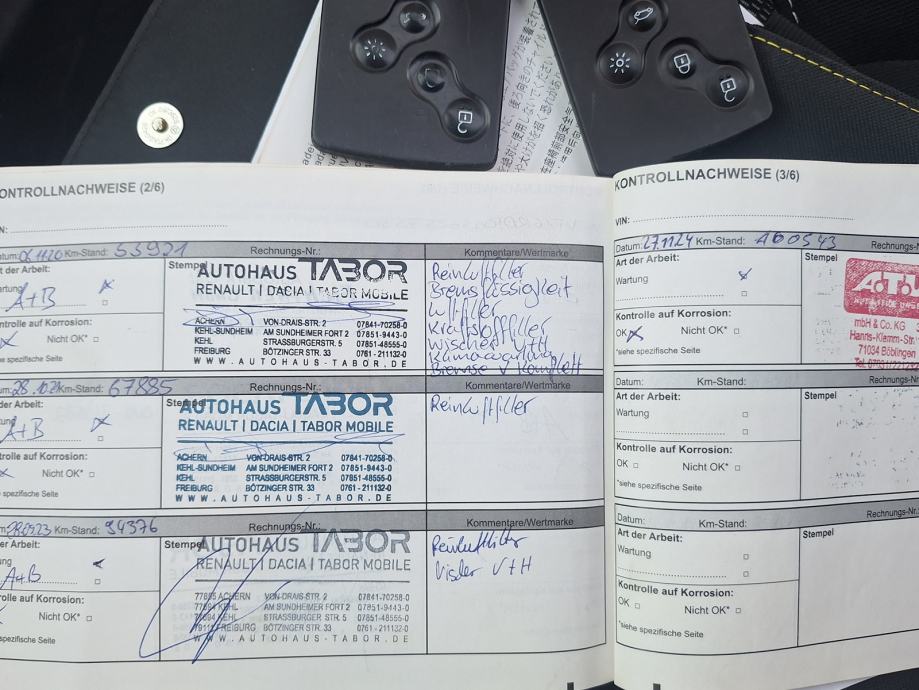 KONTROLLNACHWEISE (2/6)
Datum: 06.11.20 Km-Stand: 53921 Rechnungs-Nr.: Kommentare/Wertmarke
Art der Arbeit: Stempel
Wartung
A+B
Kontrolle auf Korrosion:
Nicht OK*
*siehe spezifische Seite
AUTOHAUS TABOR
RENAULT | DACIA | TABOR MOBILE
ACHERN VON-DRAIS-STR. 2 07841-70258-0
KEHL-SUNDHEIM AM SUNDHEIMER FORT 2 07851-9443-0
KEHL STRASSBURGERSTR. 5 07851-48555-0
FREIBURG BÖTZINGER STR. 33 0761-211132-0
WWW.AUTOHAUS-TABOR.DE
Reinluftfilter
Bremsflüssigkeit
Luftfilter
Kraftstofffilter
Wischer V+H
Bremse V komplett
28.10.21 Km-Stand: 67885 Kommentare/Wertmarke
der Arbeit: Stempel
A+B
Kontrolle auf Korrosion:
Nicht OK*
spezifische Seite
AUTOHAUS TABOR
RENAULT | DACIA | TABOR MOBILE
ACHERN VON-DRAIS-STR. 2 07841-70258-0
KEHL-SUNDHEIM AM SUNDHEIMER FORT 2 07851-9443-0
KEHL STRASSBURGERSTR. 5 07851-48555-0
FREIBURG BÖTZINGER STR. 33 0761-211132-0
WWW.AUTOHAUS-TABOR.DE
Reinluftfilter
Km-Stand: 94376 Rechnungs-Nr.: Kommentare/Wertmarke
der Arbeit: Stempel
A+B
Kontrolle auf Korrosion:
Nicht OK*
siehe spezifische Seite
AUTOHAUS TABOR
RENAULT | DACIA | TABOR MOBILE
77855 ACHERN VON-DRAIS-STR. 2 07841-70258-0
KEHL AM SUNDHEIMER FORT 2 07851-9443-0
KEHL STRASSBURGER STR. 5 07851-48555-0
FREIBURG BÖTZINGER STR. 33 0761-211132-0
WWW.AUTOHAUS-TABOR.DE
Reinluftfilter
V+H
KONTROLLNACHWEISE (3/6)
VIN:
Datum: 27.11.24 Km-Stand: 160543 Rechnungs-N
Art der Arbeit: Stempel
Wartung
Kontrolle auf Korrosion:
OK Nicht OK*
*siehe spezifische Seite
A.T.U
mbH & Co. KG
Hanns-Klemm-Str.
71034 Böblingen
Km-Stand: Rechnungs-N
Art der Arbeit: Stempel
Wartung
Kontrolle auf Korrosion:
OK Nicht OK*
*siehe spezifische Seite
Datum: Km-Stand: Rechnungs-N
Art der Arbeit: Stempel
Wartung
Kontrolle auf Korrosion:
OK Nicht OK*
*siehe spezifische Seite